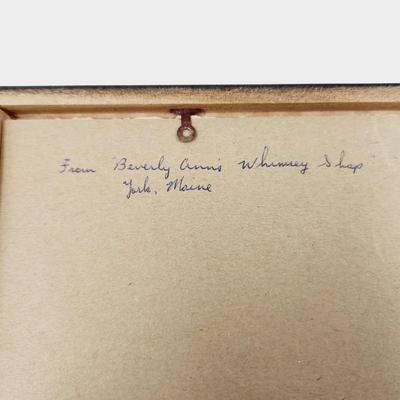 From "Beverly Ann's Whimsey Shop"
York, Maine